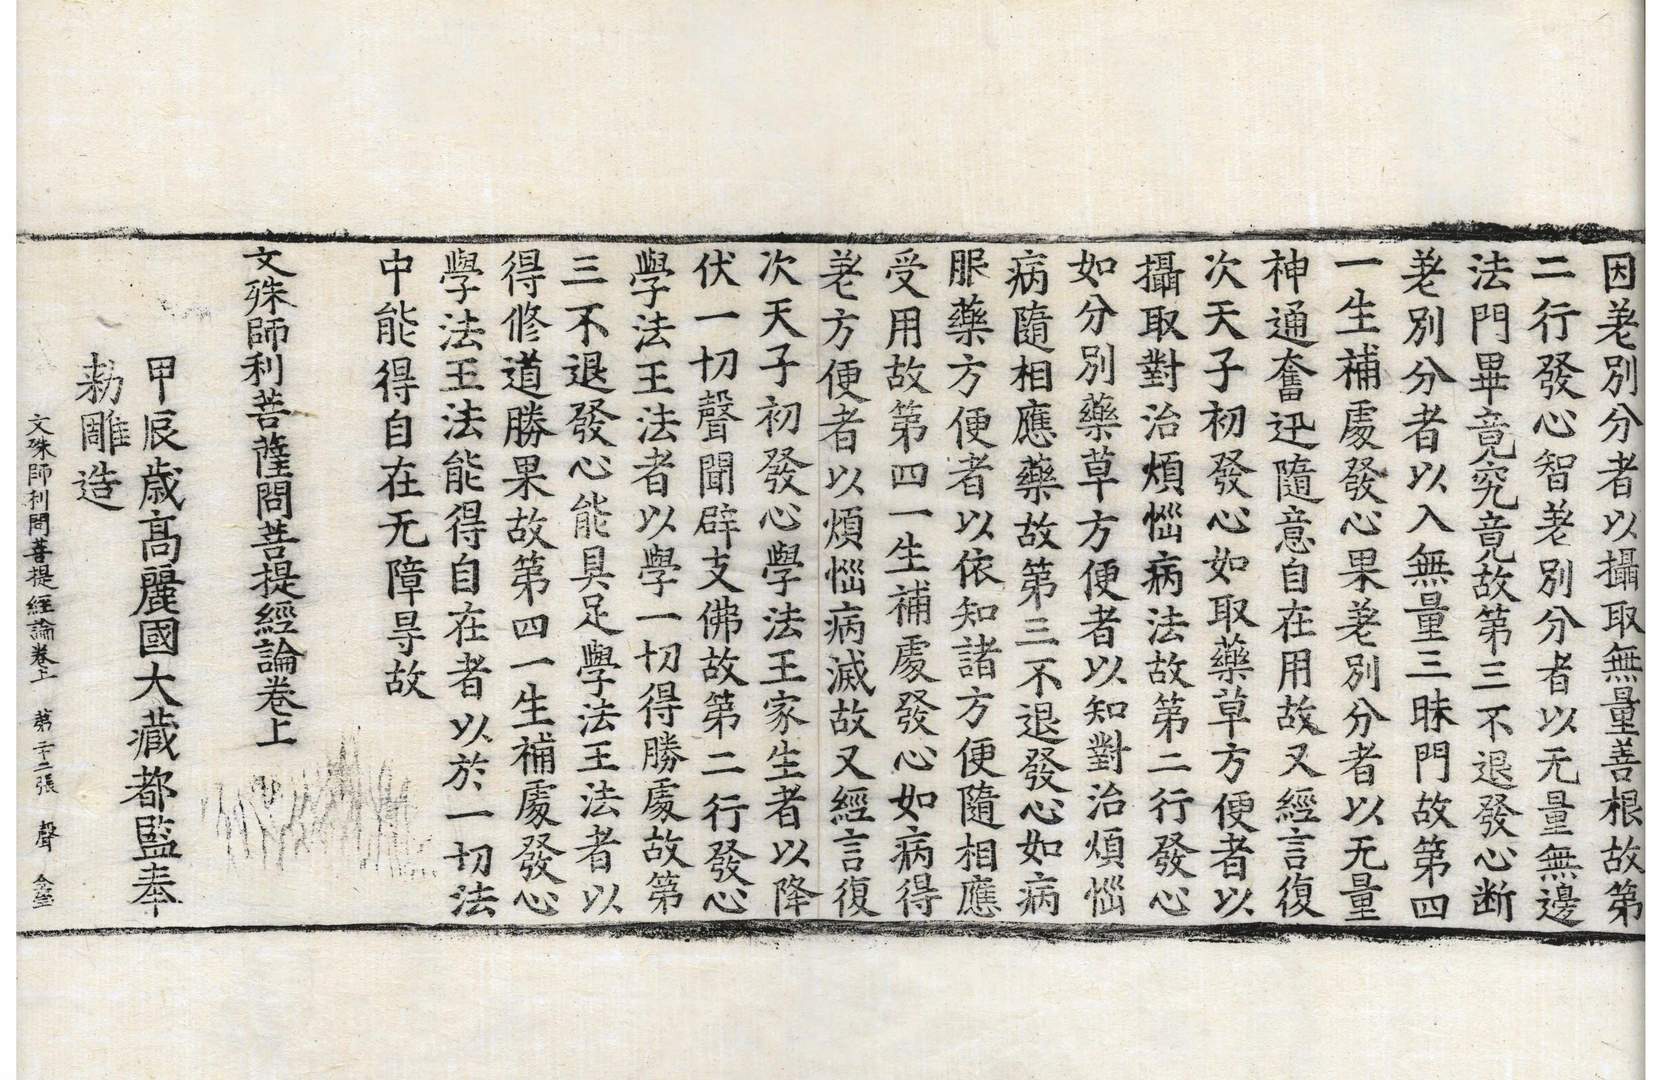 因差別分者以攝取無量善根故第
二行發心智差別分者以无量無邊
法門畢竟究竟故第三不退發心断
差別分者以入無量三昧門故第四
一生補處發心果差別分者以无量
神通奮迅隨意自在用故又經言復
次天子初發心如取藥草方便者以
攝取對治煩惱病法故第二行發心
如分別藥草方便者以知對治煩惱
病隨相應藥故第三不退發心如病
服藥方便者以依知諸方便隨相應
受用故第四一生補處發心如病得
差方便者以煩惱病滅故又經言復
次天子初發心學法王家生者以降
伏一切聲聞辟支佛故第二行發心
學法王法者以學一切得勝處故第
三不退發心能具足學法王法者以
得修道勝果故第四一生補處發心
學法王法能得自在者以於一切法
中能得自在无障㝵故
文殊師利菩薩問菩提經論卷上
甲辰歲高麗國大藏都監奉
勅雕造
文殊師利問菩提經論卷上 第二十二張 聲